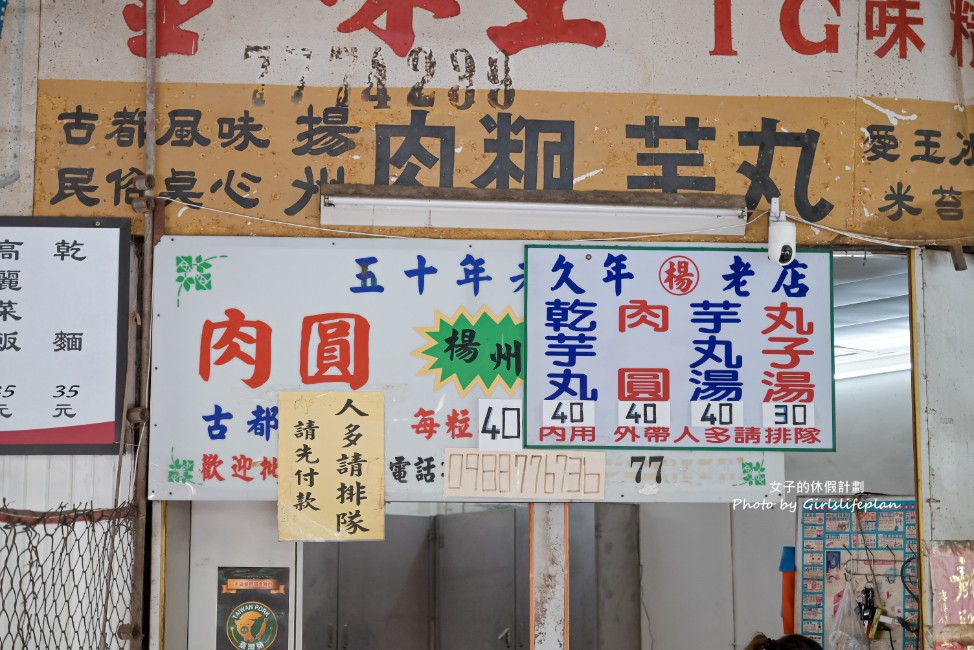 味王 TG味精
7774299
古都風味 揚州 肉粗 芋丸 愛玉冰
民俗桌心 米苔
高麗菜飯
35元
乾麵
35元
五十年老
肉圓
楊州
古都
每粒 40
歡迎批
電話:
0988776736
77
人多請排隊
請先付款
久年 楊 老店
乾芋丸 40
肉圓 40
芋丸湯 40
丸子湯 30
內用 外帶人多請排隊
女子的休假計劃
Photo by Girlslifeplan
TAIWAN PORK
臺灣豬